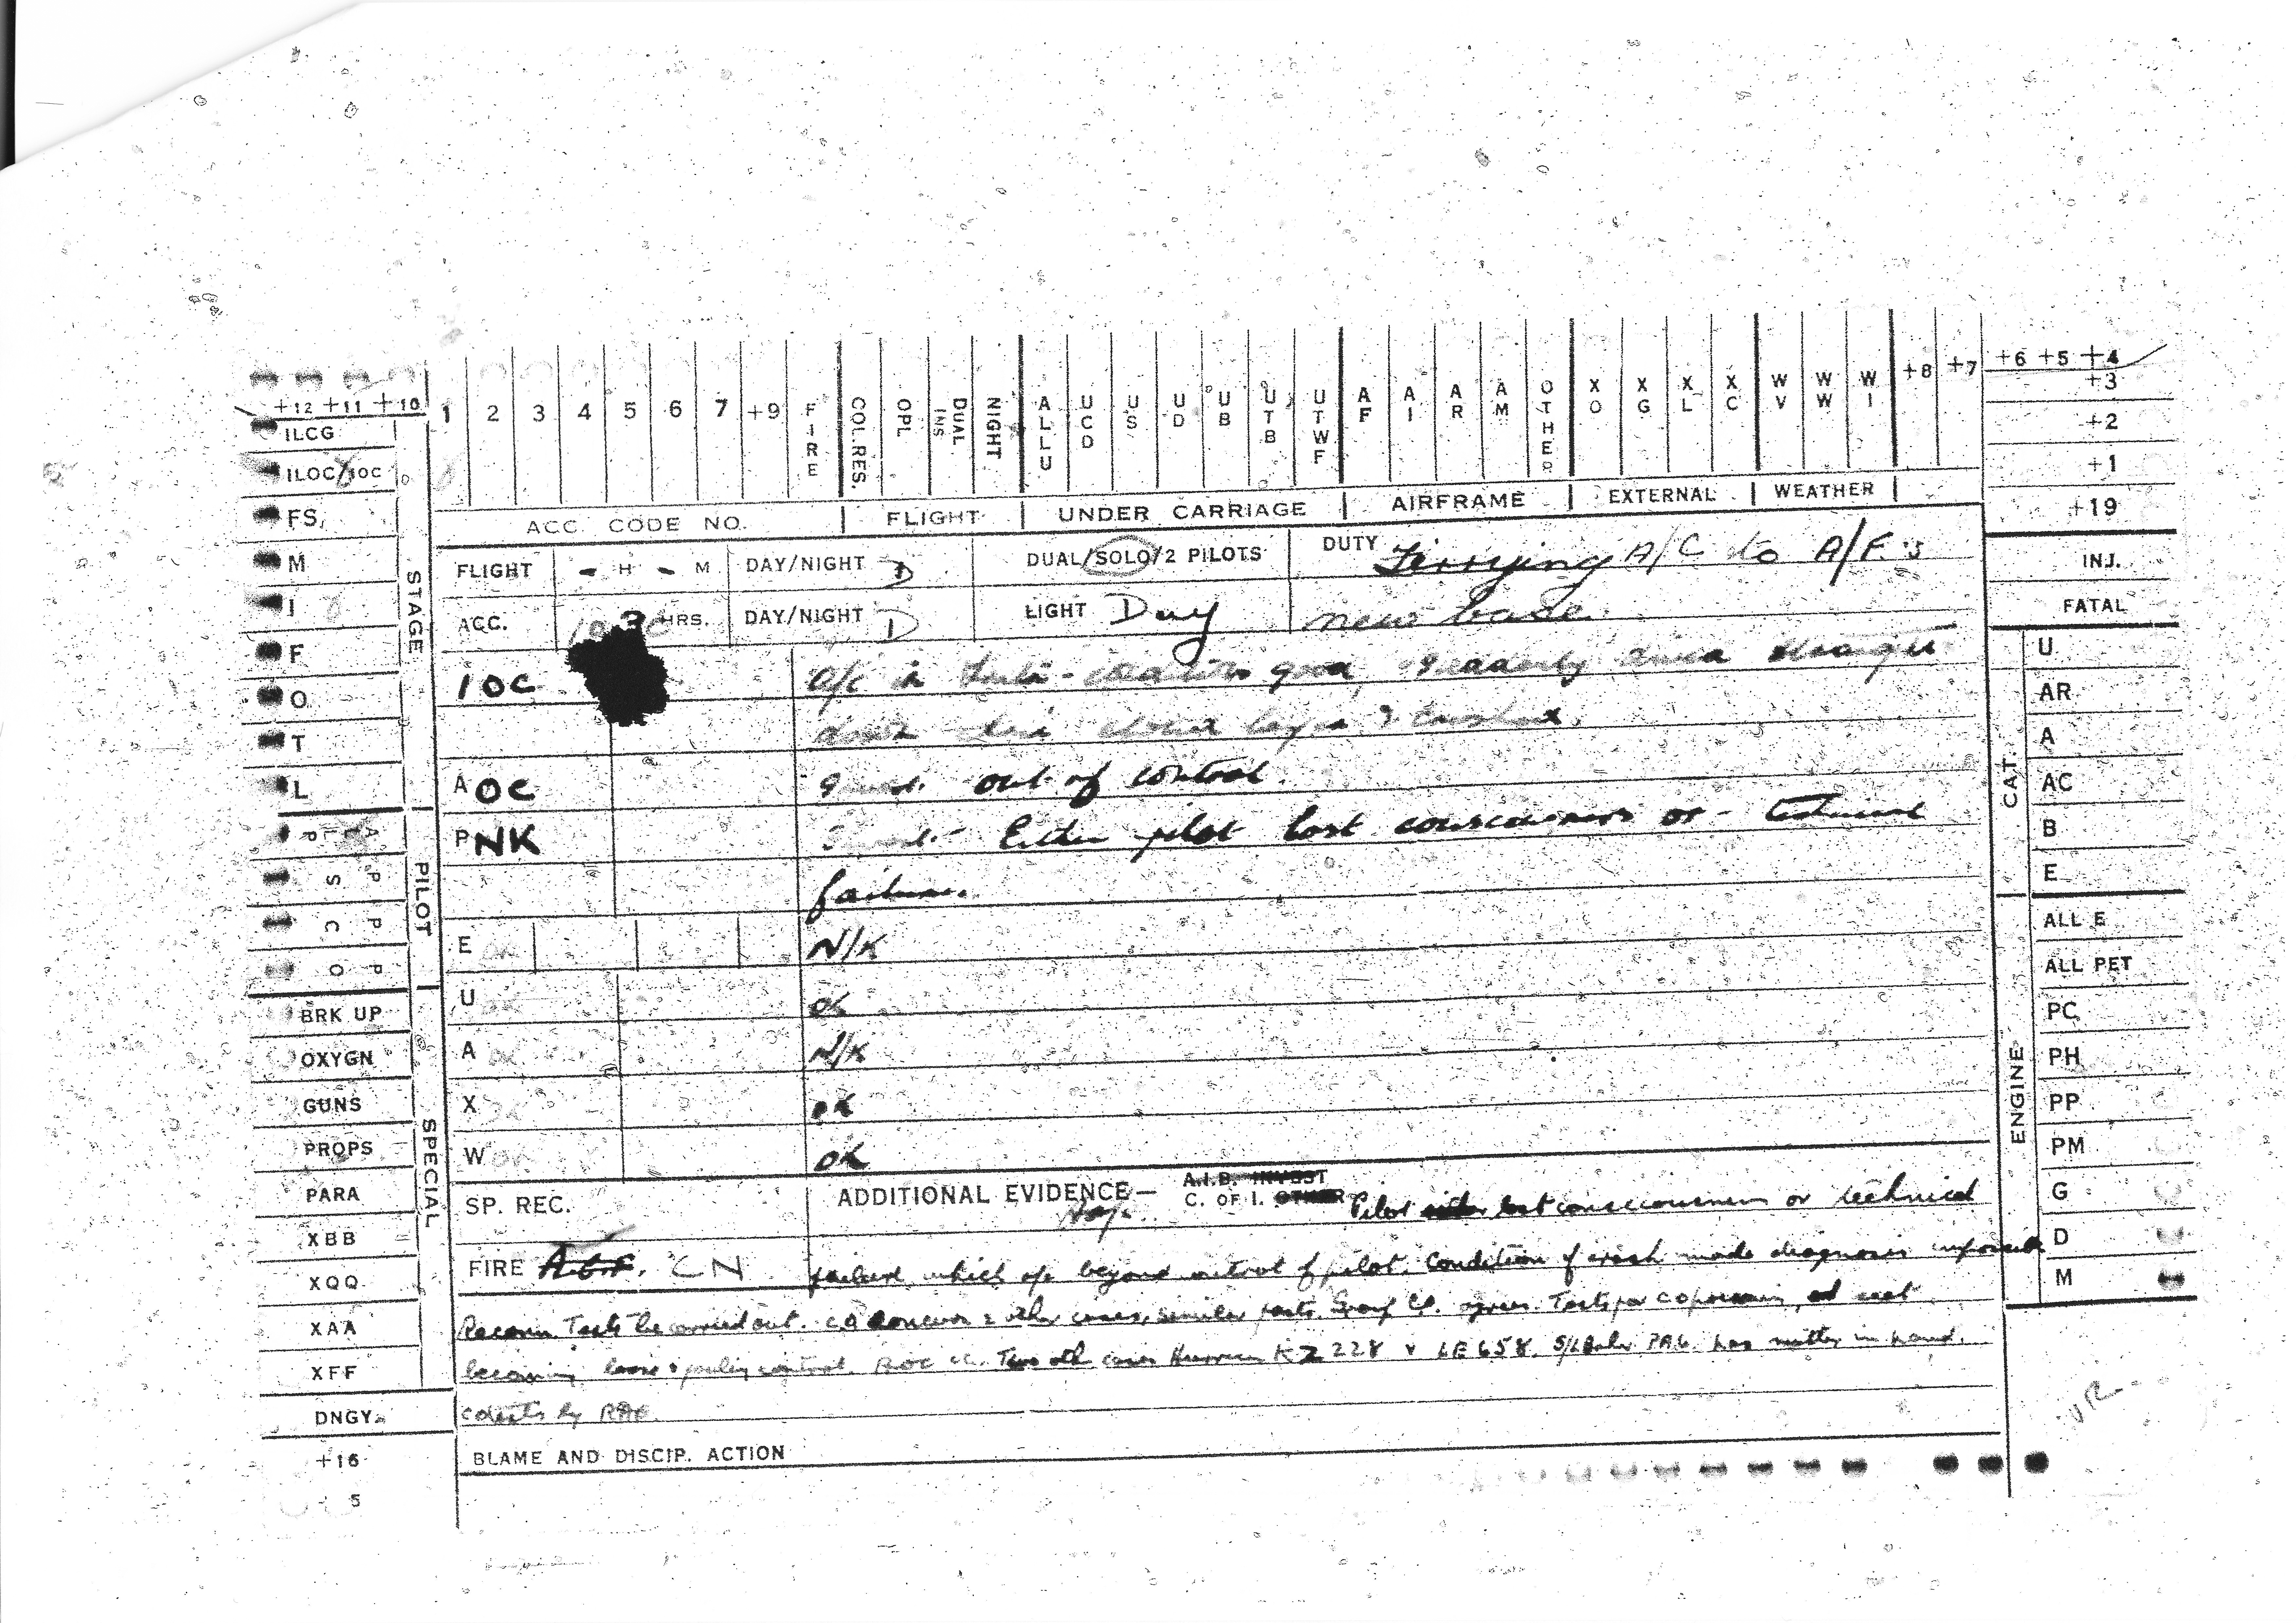 +12 +11 +10 1 2 3 4 5 6 7 +9 FIRE COL.RES. OPL DUAL INS NIGHT ALLU UCD US UD UB UTB UTWF AF AI AR AM OTHER XO XG XL XC WV WW WI +8 +7 +6 +5 +4
+3
+2
+1
+19
INJ.
FATAL
ILCG
ILOC/IOC
FS
M
I
F
O
T
L
STAGE
ALL P
PS
PC
PO
PILOT
BRK UP
OXYGN
GUNS
PROPS
PARA
XBB
XQQ
XAA
XFF
SPECIAL
DNGY
+16
5
ACC. CODE NO. FLIGHT UNDER CARRIAGE AIRFRAME EXTERNAL WEATHER
FLIGHT - H - M. DAY/NIGHT D DUAL/SOLO/2 PILOTS DUTY Ferrying A/C to A/F's
ACC. HRS. DAY/NIGHT D LIGHT Day new base.
IOC A/c in good, steadily
cloud layer &
A OC out of control.
P NK Either pilot lost consciousness or - technical
failure.
E N/K
U OK
A N/K
X OK
W OK
SP. REC. ADDITIONAL EVIDENCE— A.I.B. INVEST
C. OF I. OTHER Pilot either lost consciousness or technical
FIRE CN failure which was beyond control of pilot. Condition of crash made diagnosis impossible
Recomm Tests be carried out. CO concurs 2 other cases, similar facts. Group Cc. agrees. Tests for CO poisoning, and seat
becoming loose & pulling control. AOC cc. Two oth cases Hurricane KZ 228 & LE 658. S/L has matter in hand.
CO tests by RAE.
BLAME AND DISCIP. ACTION
U
AR
A
AC
B
E
CAT.
ALL E
ALL PET
PC
PH
PP
PM
G
D
M
ENGINE